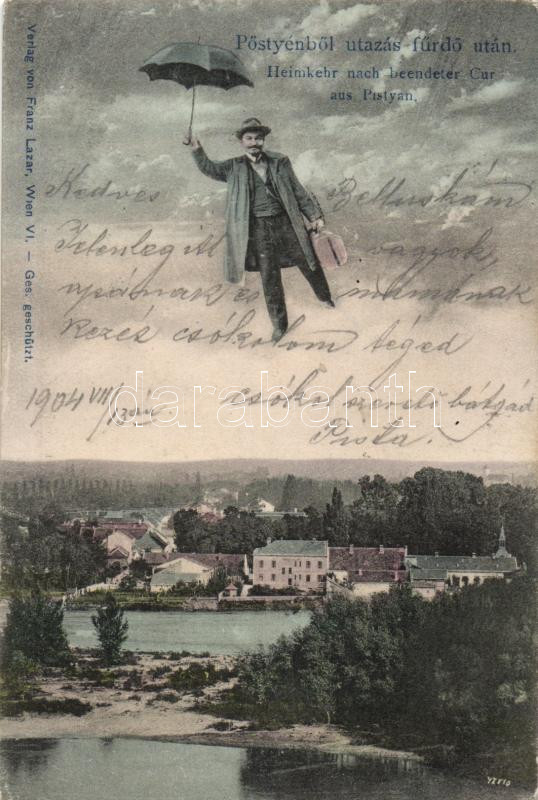 Pöstyénből utazás fürdő után.
Heimkehr nach beendeter Cur
aus Pistyan.
Verlag von Franz Lazar, Wien VI. – Ges. geschützt.
Kedves Belluskám
Jelenleg itt vagyok,
apának és mamának
kezés csókolom téged
1904 VII/13
csókol szerető bátyád
Pista.
darabanth.com
47510